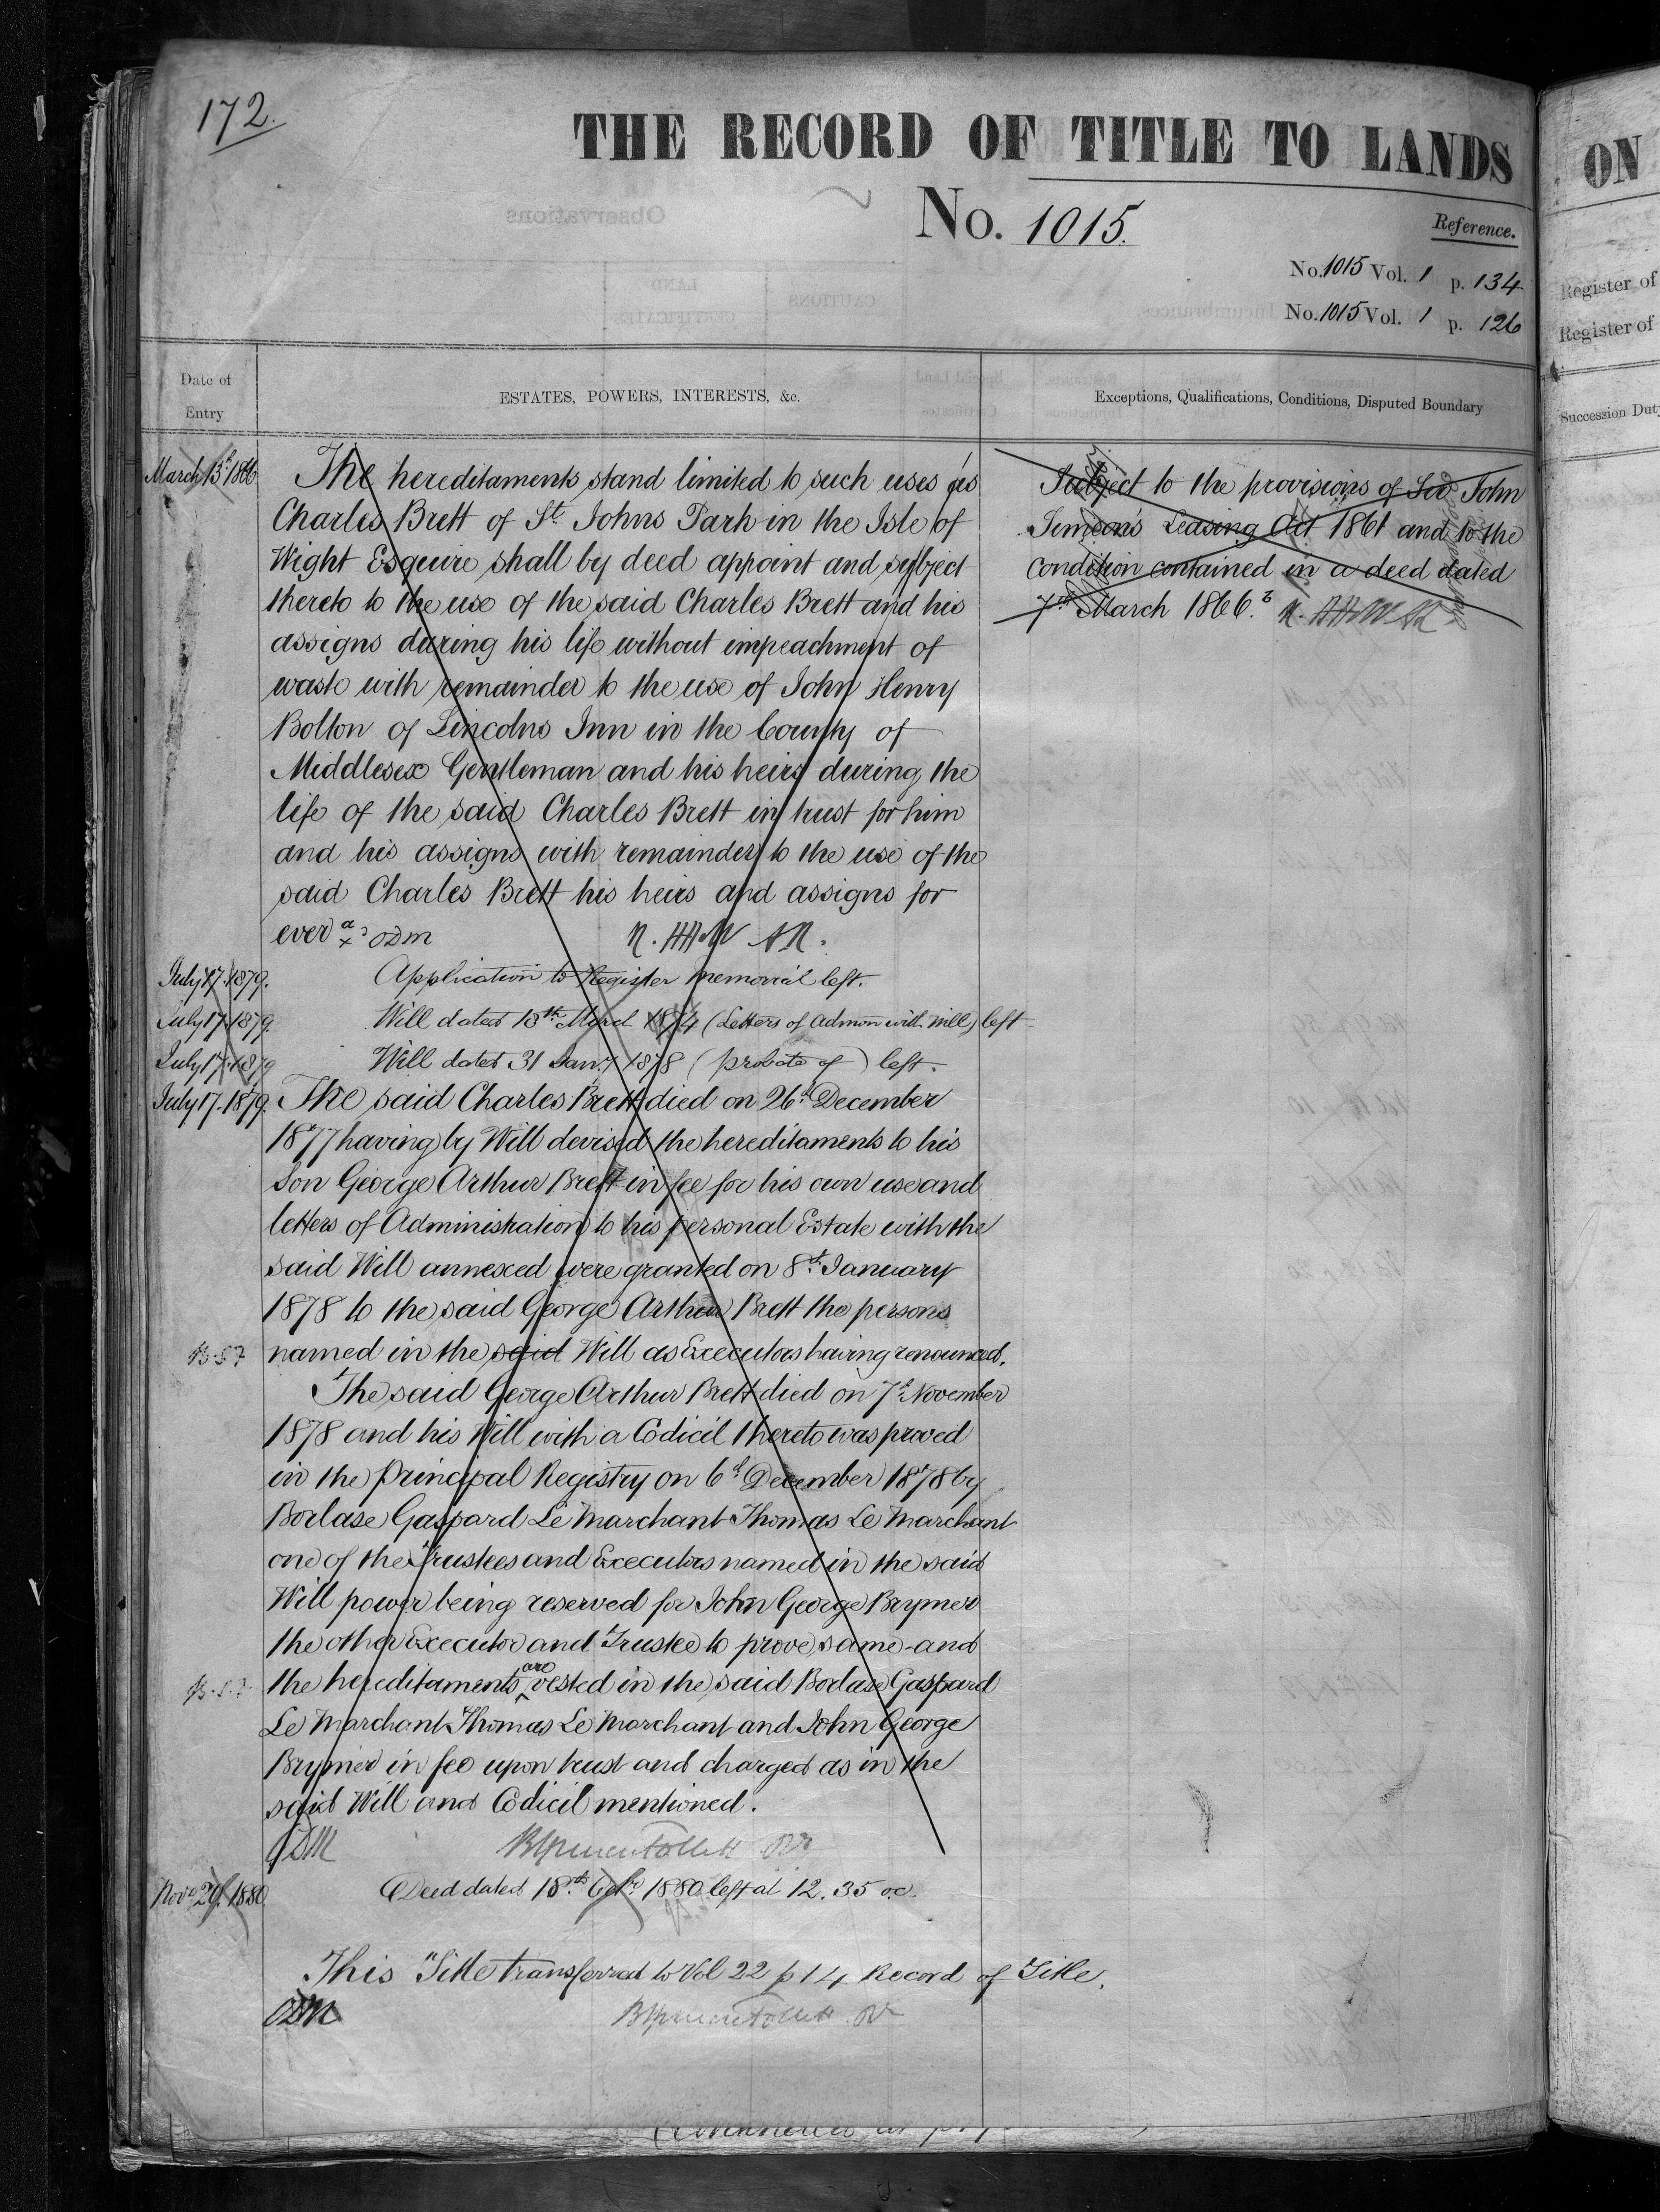 172.
THE RECORD OF TITLE TO LANDS
No. 1015.
Reference.
No. 1015 Vol. 1 p. 134
No. 1015 Vol. 1 p. 126
Date of
Entry
ESTATES, POWERS, INTERESTS, &c.
Exceptions, Qualifications, Conditions, Disputed Boundary
March 13th 1866
The hereditaments stand limited to such uses as
Charles Brett of St. Johns Park in the Isle of
Wight Esquire shall by deed appoint and subject
thereto to the use of the said Charles Brett and his
assigns during his life without impeachment of
waste with remainder to the use of John Henry
Bolton of Lincolns Inn in the County of
Middlesex Gentleman and his heirs during the
life of the said Charles Brett in trust for him
and his assigns with remainder to the use of the
said Charles Brett his heirs and assigns for
ever a x ODM
Subject to the provisions of Sir John
Simeon's Leasing Act 1861 and to the
condition contained in a deed dated
7th March 1866.
July 17. 1879. Application to Register memorial left.
July 17. 1879. Will dated 18th March 1874 (Letters of Admon with Will) left
July 17. 1879 Will dated 31 Jany 1878 (probate of) left.
July 17. 1879. The said Charles Brett died on 26th December
1877 having by Will devised the hereditaments to his
Son George Arthur Brett in fee for his own use and
letters of Administration to his personal Estate with the
said Will annexed were granted on 8th January
1878 to the said George Arthur Brett the persons
named in the said Will as Executors having renounced.
The said George Arthur Brett died on 7th November
1878 and his Will with a Codicil thereto was proved
in the Principal Registry on 6th December 1878 by
Borlase Gaspard Le Marchant Thomas Le Marchant
one of the Trustees and Executors named in the said
Will power being reserved for John George Brymer
the other Executor and Trustee to prove same and
the hereditaments are vested in the said Borlase Gaspard
Le Marchant Thomas Le Marchant and John George
Brymer in fee upon trust and charged as in the
said Will and Codicil mentioned.
ODM
Nov 29. 1880 Deed dated 18th Octr 1880 left at 12.35 oc.
This Title transferred to Vol 22 p 14 Record of Title.
ODM
ON
Register of
Register of
Succession Duty